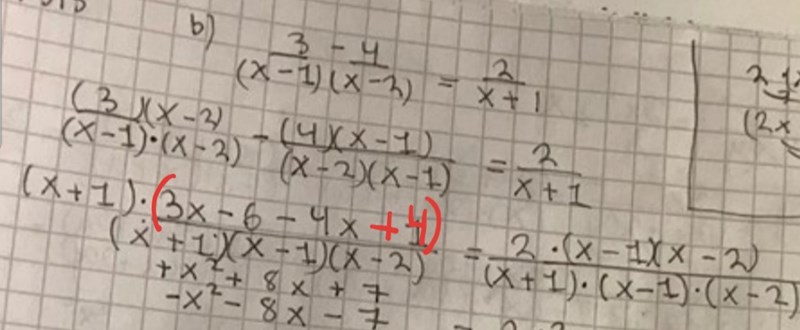 b)
3/(x-1) - 4/(x-2) = 2/(x+1)
(3)(x-2)/(x-1)·(x-2) - (4)(x-1)/(x-2)(x-1) = 2/(x+1)
(x+1)·(3x-6-4x+4)/(x+1)(x-1)(x-2) = 2·(x-1)(x-2)/(x+1)·(x-1)·(x-2)
+x²+8x+7
-x²-8x-7
(2x